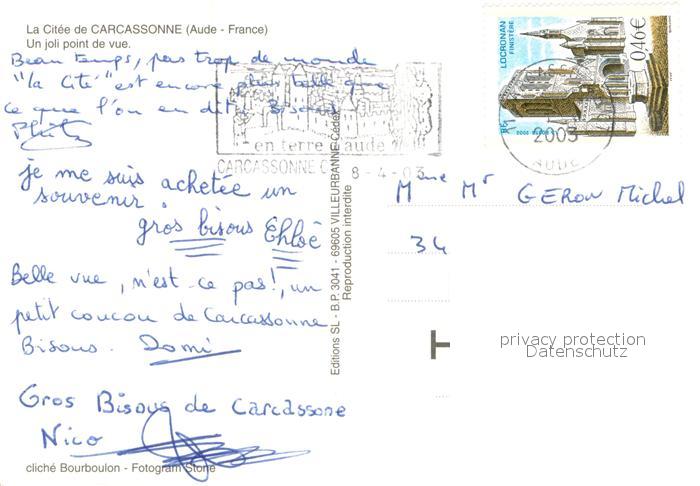 La Citée de CARCASSONNE (Aude - France)
Un joli point de vue.
Beau temps, pas trop de monde
"la Cité" est encore plus belle que
ce que l'on en dit! Bisous
je me suis achetée un
souvenir.
gros bisous Ehloè
Belle vue, n'est-ce pas!, un
petit coucou de Carcassonne
Bisous. Domi
Gros Bisous de Carcassone
Nico
cliché Bourboulon - Fotogram Stone
Editions SL - B.P. 3041 - 69605 VILLEURBANNE Cédex
Reproduction interdite
en terre aude
CARCASSONNE C
8-4-03
LOCRONAN
FINISTÈRE
0,46€
RF
2003
AUDE
Mme Mr GERON Michel
34
T
privacy protection
Datenschutz